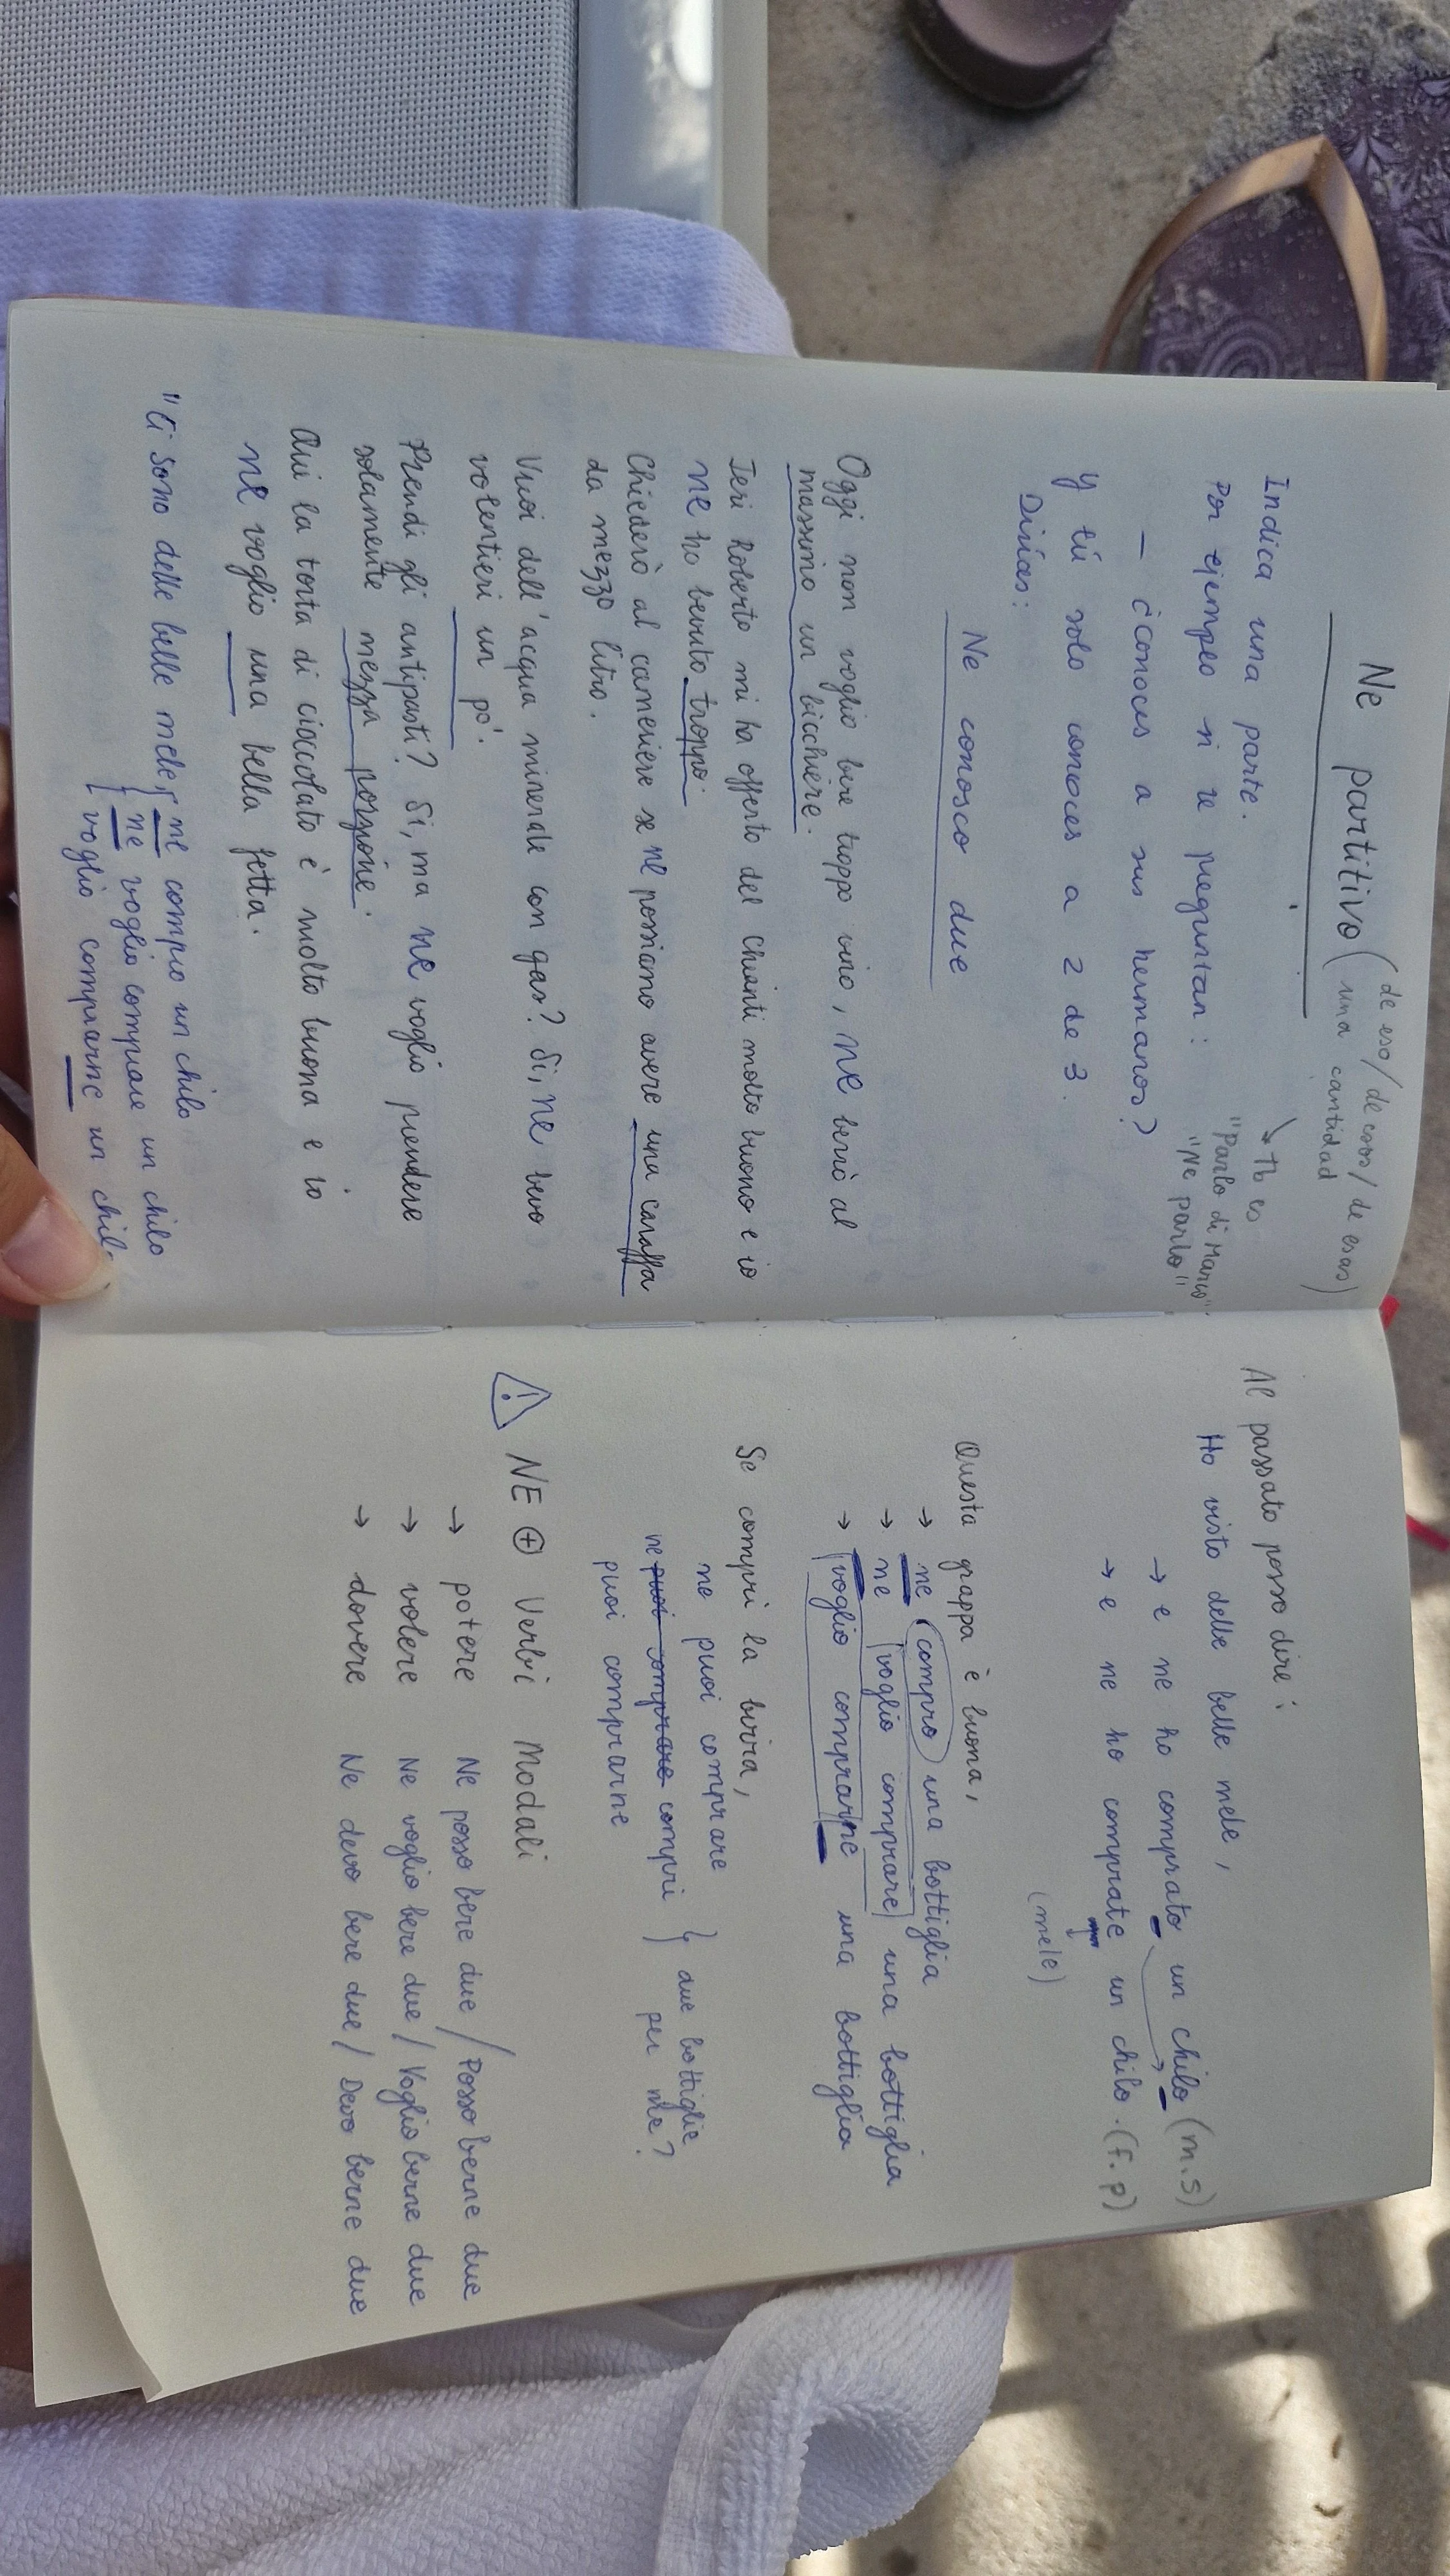 Ne partitivo (de eso / de esos / de esas)
una cantidad
Indica una parte.
→ Tb es
"Parlo di Marco".
"Ne parlo"
Por ejemplo si te preguntan:
– ¿conoces a sus hermanos?
Y tú solo conoces a 2 de 3.
Dirías:
Ne conosco due
Oggi non voglio bere troppo vino, ne berrò al
massimo un bicchiere.
Ieri Roberto mi ha offerto del Chianti molto buono e io
ne ho bevuto troppo.
Chiederò al cameriere se ne possiamo avere una caraffa
da mezzo litro.
Vuoi dell'acqua minerale con gas? Sì, ne bevo
volentieri un po'.
Prendi gli antipasti? Sì, ma ne voglio prendere
solamente mezza porzione.
Qui la torta di cioccolato è molto buona e io
ne voglio una bella fetta.
"Ci sono delle belle mele, { ne compro un chilo
{ ne voglio comprare un chilo
{ voglio comprarne un chilo
Al passato posso dire:
Ho visto delle belle mele,
→ e ne ho comprato un chilo (m.s)
→ e ne ho comprate un chilo. (f.p)
(mele)
Questa grappa è buona,
→ ne compro una bottiglia
→ ne voglio comprare una bottiglia
→ voglio comprarne una bottiglia
Se compri la birra,
ne puoi comprare
ne puoi comprare compri } due bottiglie
per me?
puoi comprarne
⚠ NE ⊕ Verbi Modali
→ potere Ne posso bere due / Posso berne due
→ volere Ne voglio bere due / Voglio berne due
→ dovere Ne devo bere due / Devo berne due